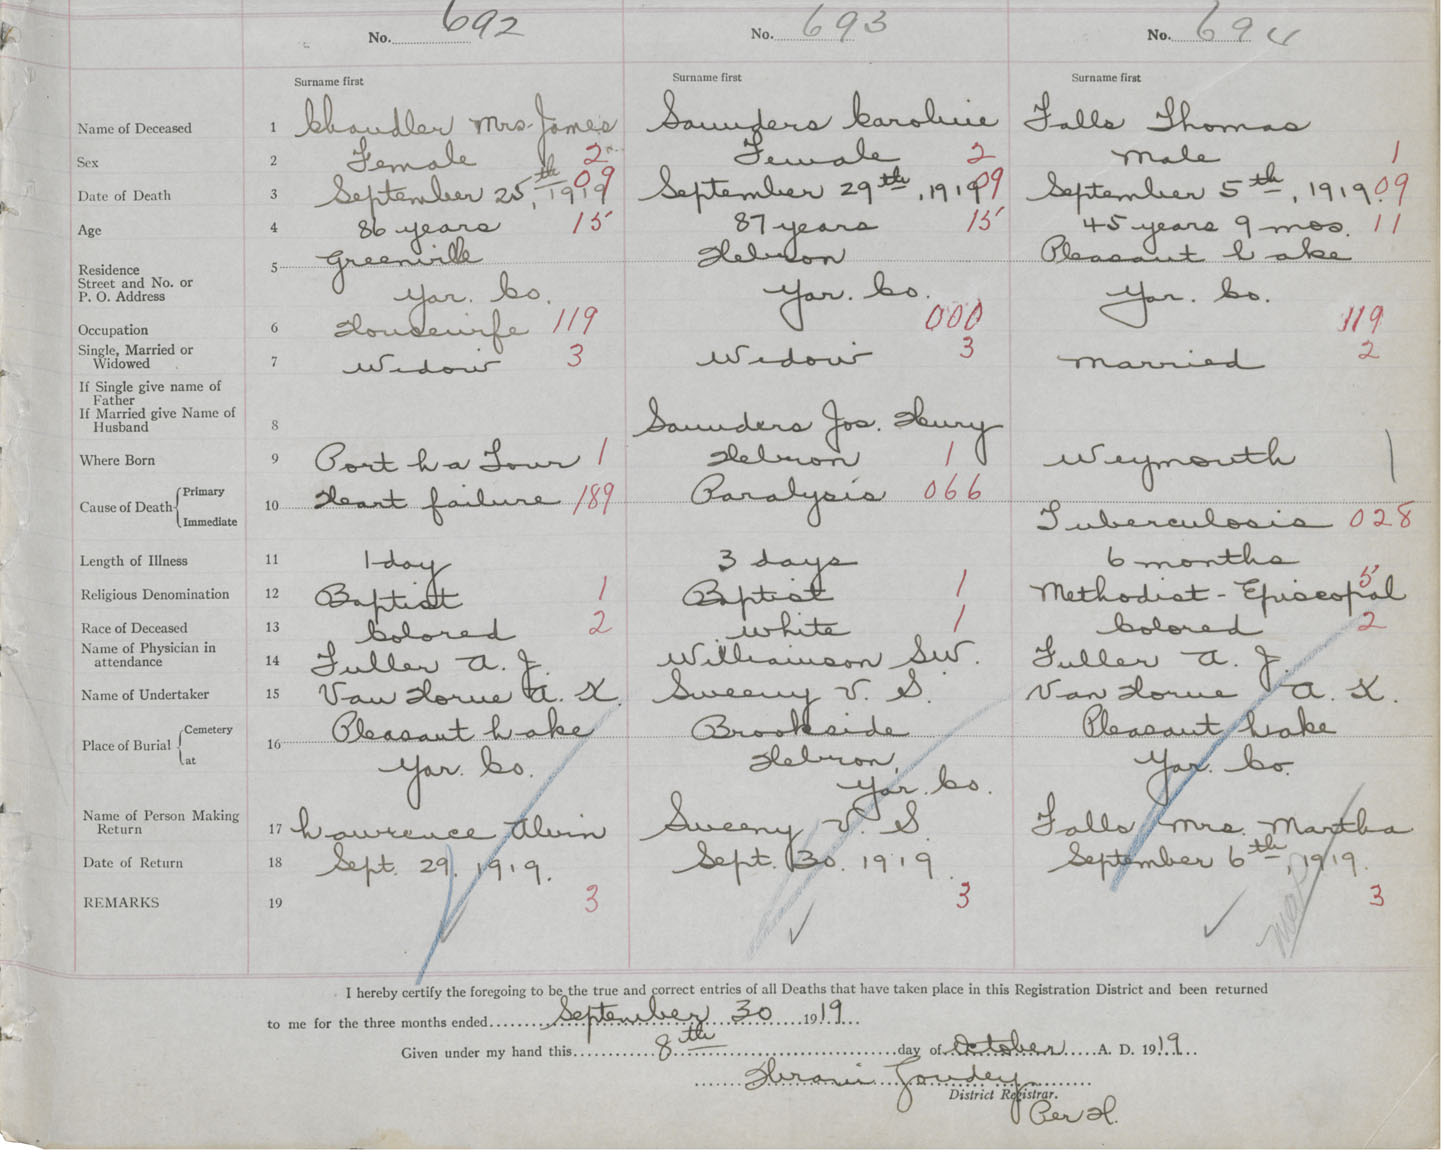 No. 692 No. 693 No. 694
Surname first Surname first Surname first
Name of Deceased 1 Chandler Mrs. James Saunders Caroline Falls Thomas
Sex 2 Female 2 Female 2 Male 1
Date of Death 3 September 25th, 1919 09 September 29th, 1919 09 September 5th, 1919. 09
Age 4 86 years 15 87 years 15 45 years 9 mos. 11
Residence 5 Greenville Hebron Pleasant Lake
Street and No. or
P. O. Address Yar. Co. Yar. Co. Yar. Co.
Occupation 6 Housewife 119 000 119
Single, Married or
Widowed 7 Widow 3 Widow 3 Married 2
If Single give name of
Father
If Married give Name of
Husband 8 Saunders Jos. Henry
Where Born 9 Port La Tour 1 Hebron 1 Weymouth 1
Cause of Death Primary 10 Heart failure 189 Paralysis 066
Immediate Tuberculosis 028
Length of Illness 11 1 day 3 days 6 months
Religious Denomination 12 Baptist 1 Baptist 1 Methodist - Episcopal 5
Race of Deceased 13 Colored 2 White 1 Colored 2
Name of Physician in
attendance 14 Fuller A. J. Williamson S.W. Fuller A. J.
Name of Undertaker 15 Van Horne A. K. Sweeny V. S. Van Horne A. K.
Place of Burial Cemetery 16 Pleasant Lake Brookside Pleasant Lake
at Yar. Co. Hebron, Yar. Co. Yar. Co.
Name of Person Making
Return 17 Lawrence Alvin Sweeny V. S. Falls Mrs. Martha
Date of Return 18 Sept. 29, 1919. Sept. 30. 1919. September 6th, 1919.
REMARKS 19 3 3 3
I hereby certify the foregoing to be the true and correct entries of all Deaths that have taken place in this Registration District and been returned
to me for the three months ended September 30 1919
Given under my hand this 8th day of October A. D. 1919
Hiram Goudey
District Registrar.
Per H.